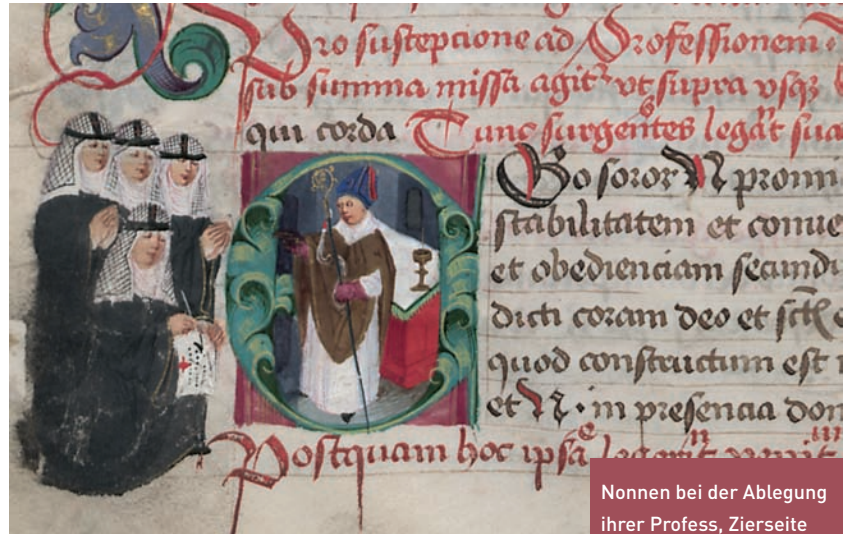 Pro susceptione ad Professionem
sub summa missa agit vt supra vsqz
qui corda Tunc surgentes legat sua
Go soror N promi
stabilitatem et conue
et obedienciam secundu
dicti coram deo et
quod constructum est
et N. in presencia don
Postquam hoc ipsa
Nonnen bei der Ablegung
ihrer Profess, Zierseite